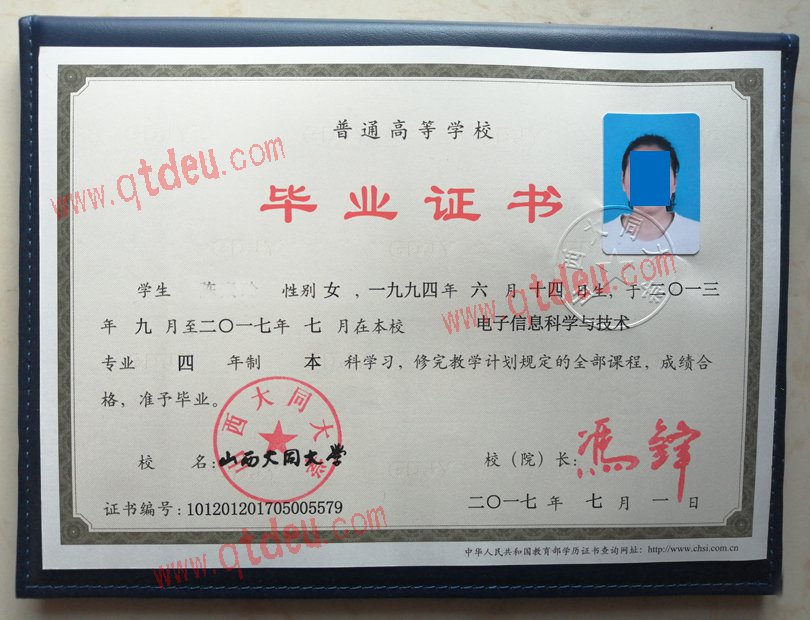 普通高等学校
毕业证书
学生 性别 女 ，一九九四年 六 月 十四 日生，于二〇一三
年 九 月至二〇一七年 七 月在本校 电子信息科学与技术
专业 四 年制 本 科学习，修完教学计划规定的全部课程，成绩合
格，准予毕业。
校 名：山西大同大学
校（院）长：馮鋒
证书编号：101201201705005579
二〇一七 年 七 月 一 日
中华人民共和国教育部学历证书查询网址：http://www.chsi.com.cn
山西大同大学
山西大同大学
www.qtdeu.com
www.qtdeu.com
www.qtdeu.com